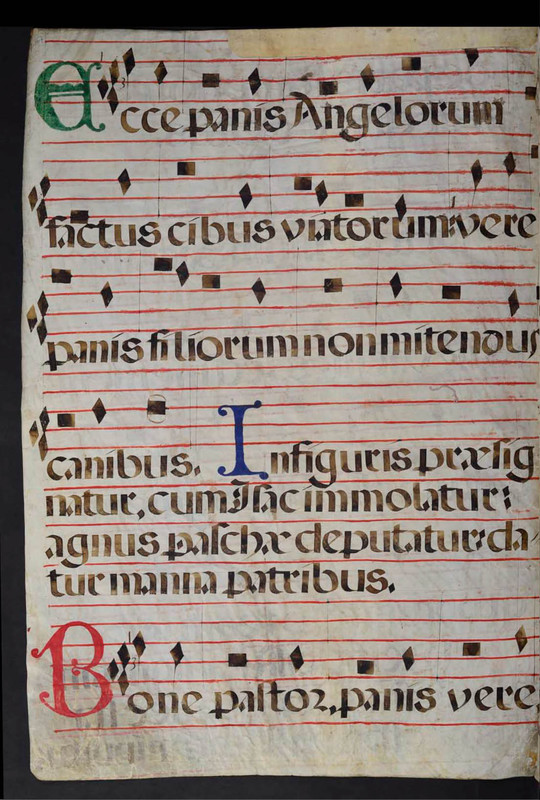 Ecce panis Angelorum
factus cibus viatorum: vere
panis filiorum non mitendus
canibus. In figuris præsig
natur, cum Isac immolatur:
agnus paschæ deputatur: da
tur manna patribus.
Bone pastor, panis vere,